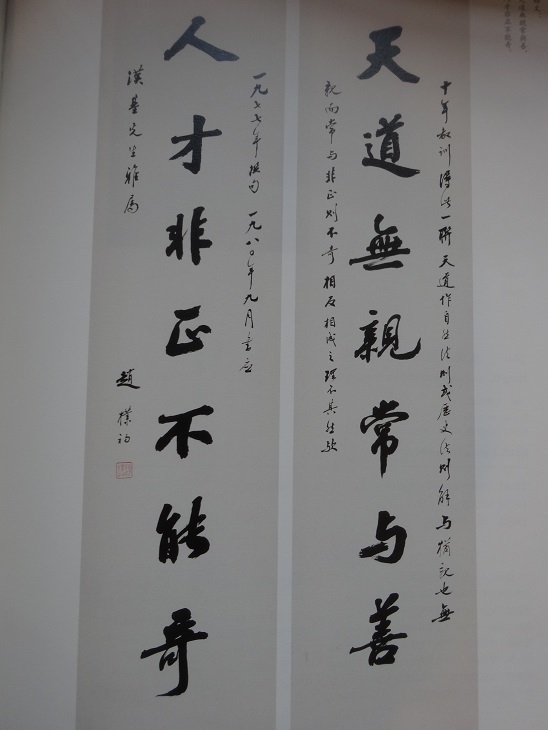 十年教训得此一联天道作自然法则或历史法则解与犹亲也無
天道無親常与善
親而常与非正则不奇相反相成之理不其然欤
一九七七年撰句 一九八〇年九月書应
人才非正不能奇
漢基先生雅属
趙樸初